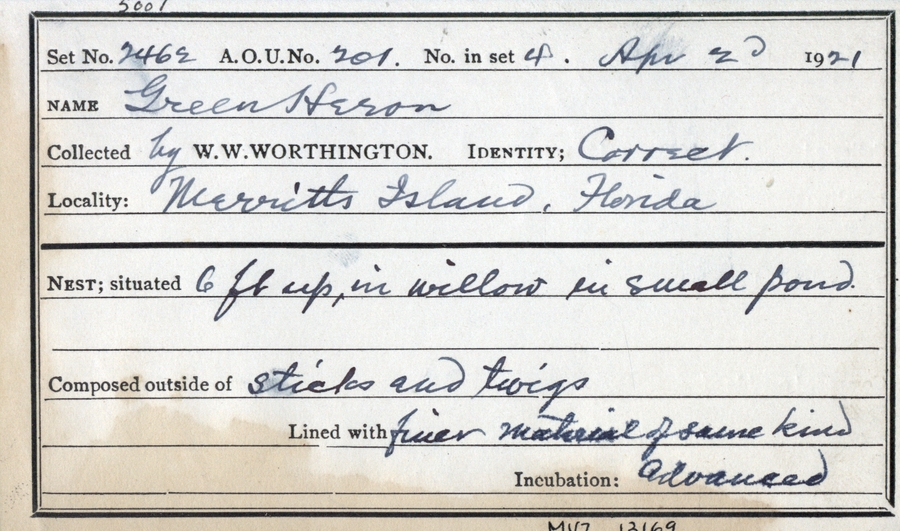 5001
Set No. 2462 A.O.U. No. 201. No. in set 4. Apr 2d 1921
NAME Green Heron
Collected by W.W. WORTHINGTON. IDENTITY; Correct.
Locality: Merritts Island, Florida
NEST; situated 6 ft up, in willow in small pond.
Composed outside of sticks and twigs
Lined with finer material of same kind
Incubation: advanced
MVZ 13169